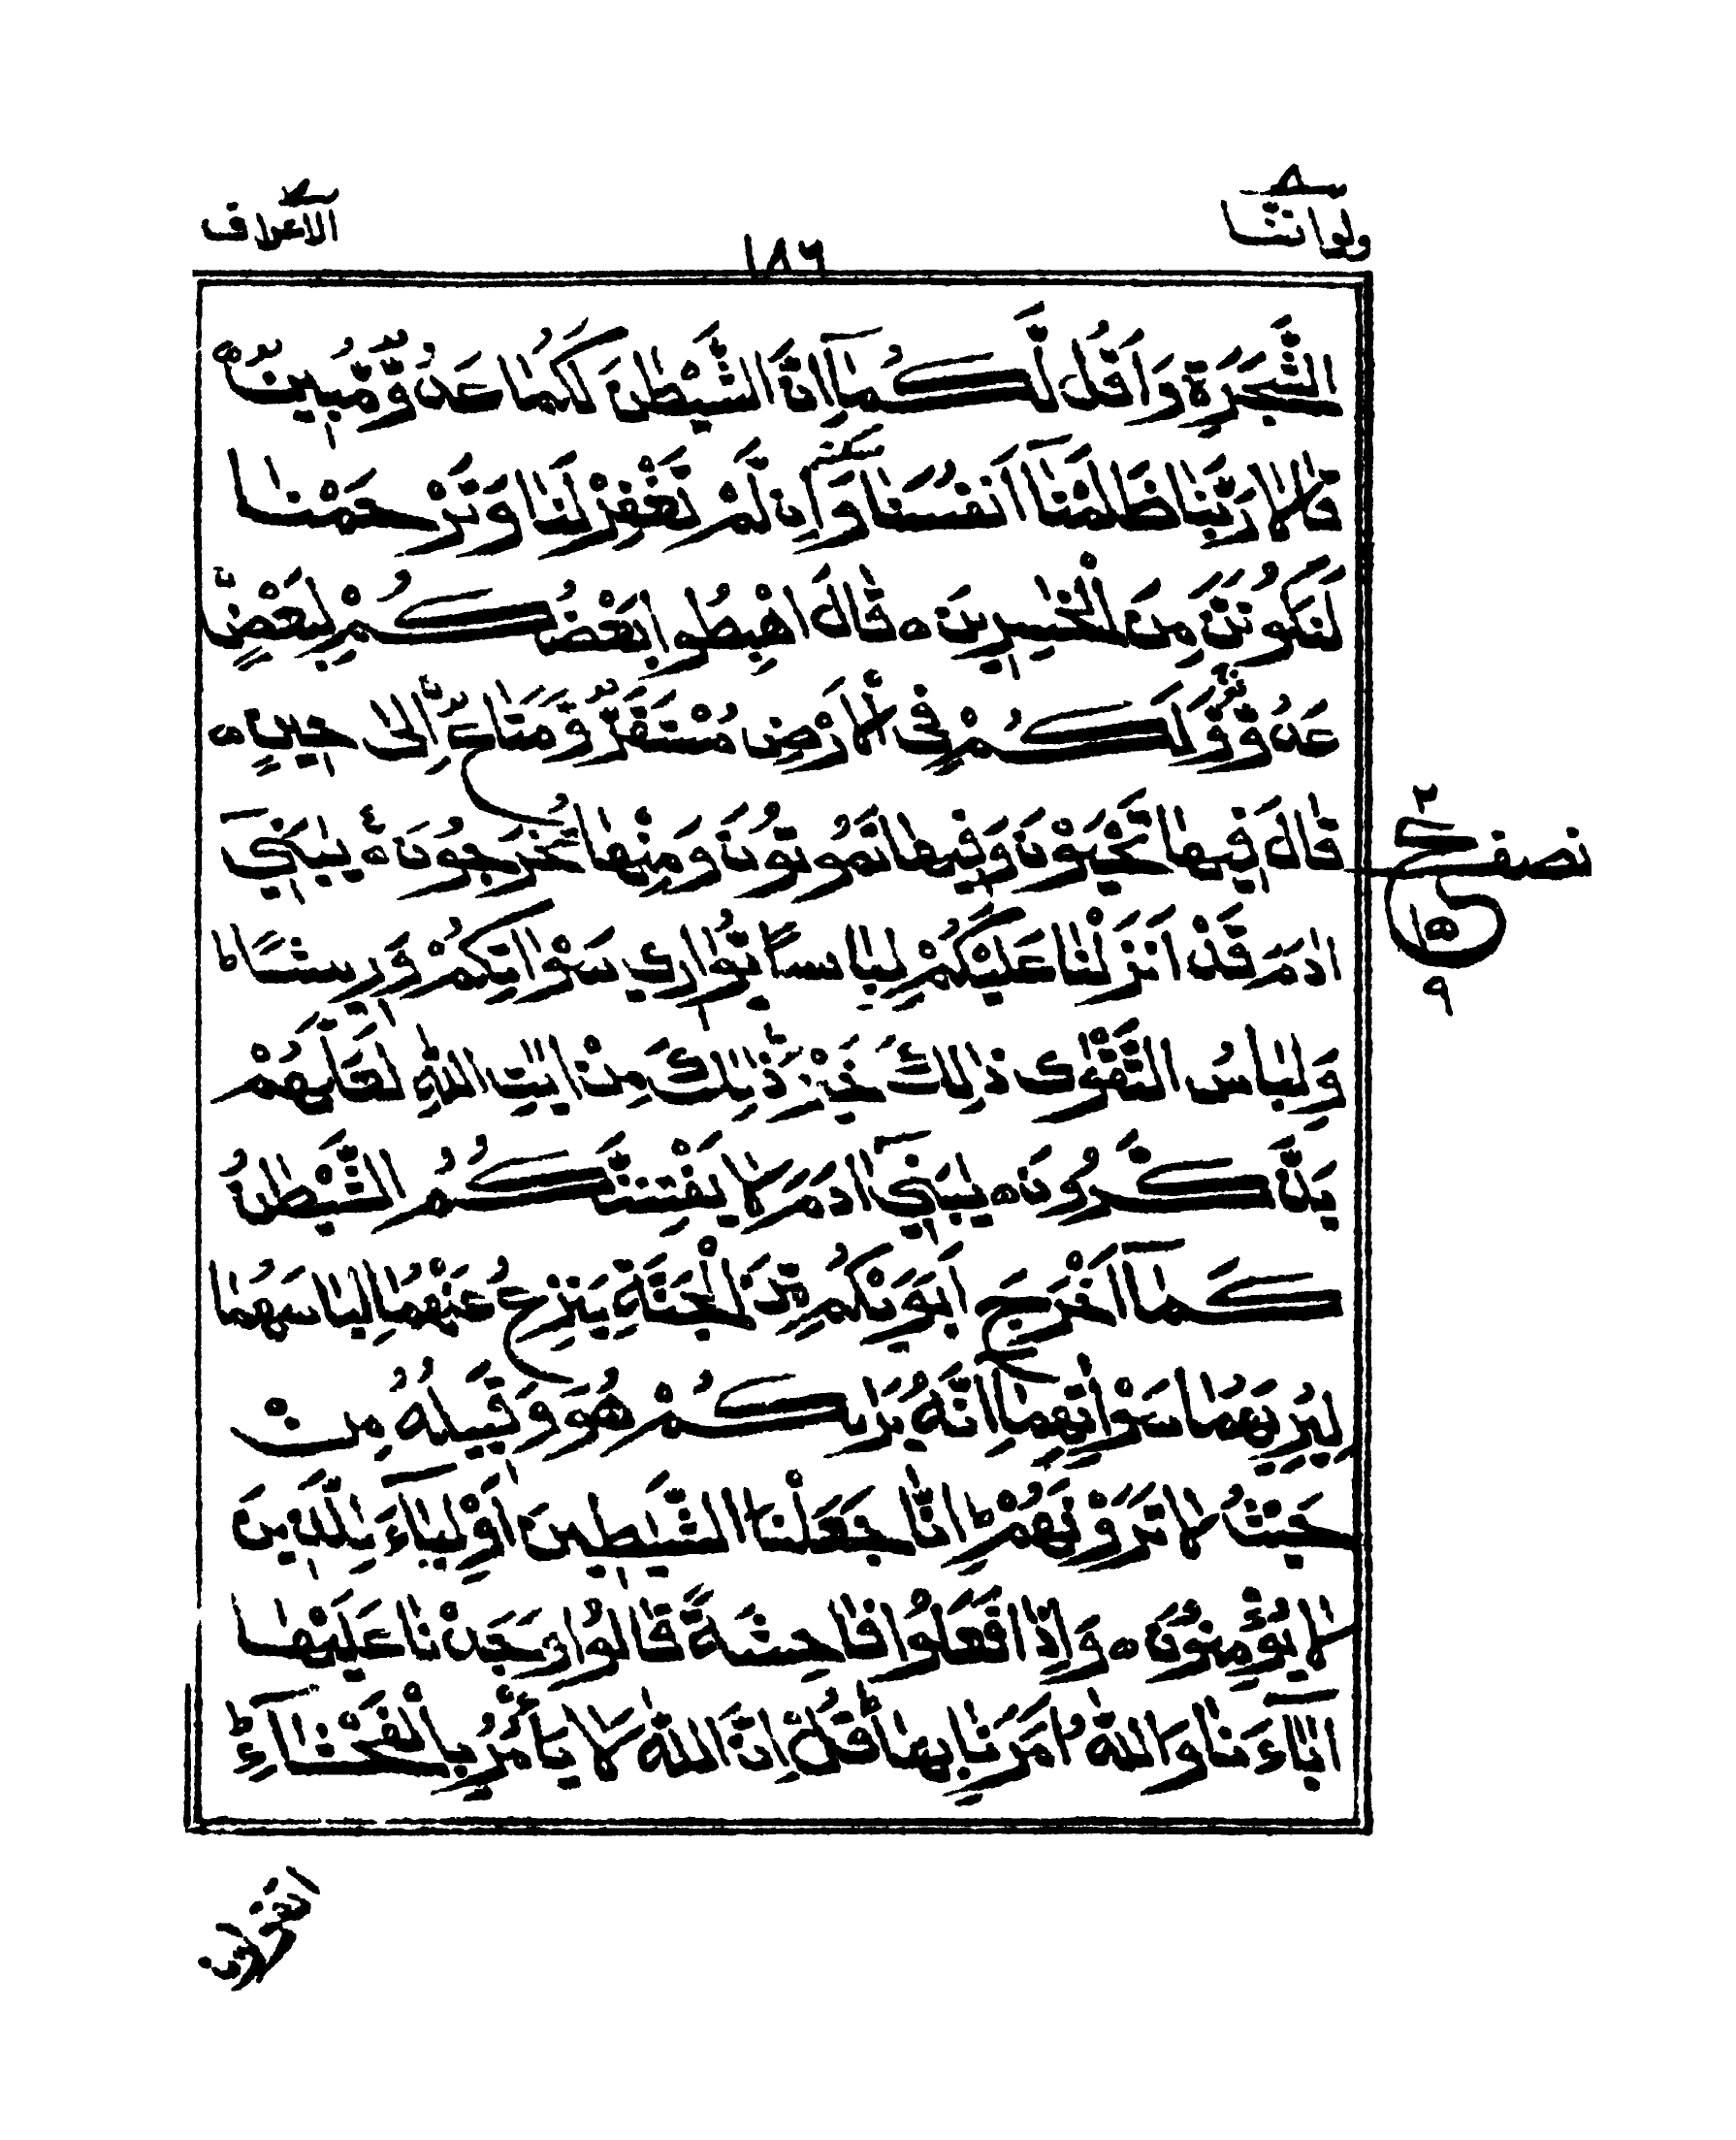 ولواننا ٨
١٨٦
الاعراف ٧
الشَّجَرَةِ وَاَقُلْ لَّكُمَاۤ اِنَّ الشَّيْطٰنَ لَكُمَا عَدُوٌّ مُّبِيْنٌ ۝
قَالَا رَبَّنَا ظَلَمْنَاۤ اَنْفُسَنَا وَاِنْ لَّمْ تَغْفِرْ لَنَا وَتَرْحَمْنَا
لَنَكُوْنَنَّ مِنَ الْخٰسِرِيْنَ ۝ قَالَ اهْبِطُوْا بَعْضُكُمْ لِبَعْضٍ
عَدُوٌّ وَلَكُمْ فِى الْاَرْضِ مُسْتَقَرٌّ وَّمَتَاعٌ اِلٰى حِيْنٍ ۝
قَالَ فِيْهَا تَحْيَوْنَ وَفِيْهَا تَمُوْتُوْنَ وَمِنْهَا تُخْرَجُوْنَ ۝ يٰبَنِيْۤ
نصف
ع
٢
١٥
٩
اٰدَمَ قَدْ اَنْزَلْنَا عَلَيْكُمْ لِبَاسًا يُّوَارِيْ سَوْاٰتِكُمْ وَرِيْشًا ط
وَلِبَاسُ التَّقْوٰى ذٰلِكَ خَيْرٌ ط ذٰلِكَ مِنْ اٰيٰتِ اللّٰهِ لَعَلَّهُمْ
يَذَّكَّرُوْنَ ۝ يٰبَنِيْۤ اٰدَمَ لَا يَفْتِنَنَّكُمُ الشَّيْطٰنُ
كَمَاۤ اَخْرَجَ اَبَوَيْكُمْ مِّنَ الْجَنَّةِ يَنْزِعُ عَنْهُمَا لِبَاسَهُمَا
لِيُرِيَهُمَا سَوْاٰتِهِمَا اِنَّهٗ يَرٰىكُمْ هُوَ وَقَبِيْلُهٗ مِنْ
حَيْثُ لَا تَرَوْنَهُمْ ط اِنَّا جَعَلْنَا الشَّيٰطِيْنَ اَوْلِيَآءَ لِلَّذِيْنَ
لَا يُؤْمِنُوْنَ ۝ وَاِذَا فَعَلُوْا فَاحِشَةً قَالُوْا وَجَدْنَا عَلَيْهَاۤ
اٰبَآءَنَا وَاللّٰهُ اَمَرَنَا بِهَا ط قُلْ اِنَّ اللّٰهَ لَا يَاْمُرُ بِالْفَحْشَآءِ ط
اتقولون